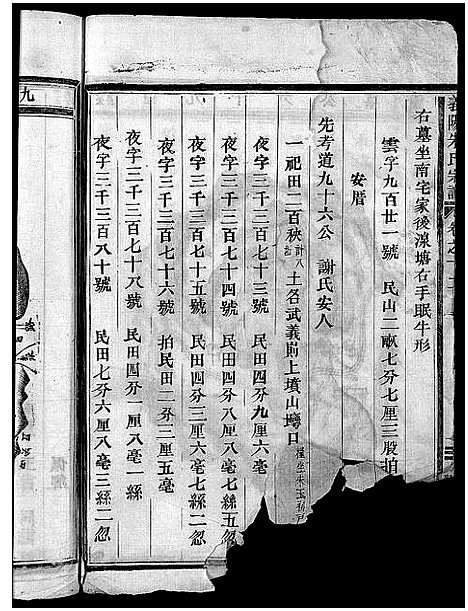 右墓坐南宅家後湶塘右手眠牛形
雲字九百廿一號　民山二畝七分七厘三股拍
安厝
先考道九十六公　謝氏安人
一祀田二百秧 土名武義則上墳山塆口
夜字三千三百七十三號　民田四分九厘六毫
夜字三千三百七十四號　民田四分八厘八毫七絲五忽
夜字三千三百七十五號　民田四分三厘六毫七絲二忽
夜字三千三百七十六號　拍民田二分三厘五毫
夜字三千三百七十八號　民田四分一厘八毫一絲
夜字三千三百八十號　民田七分六厘八毫三絲二忽
九